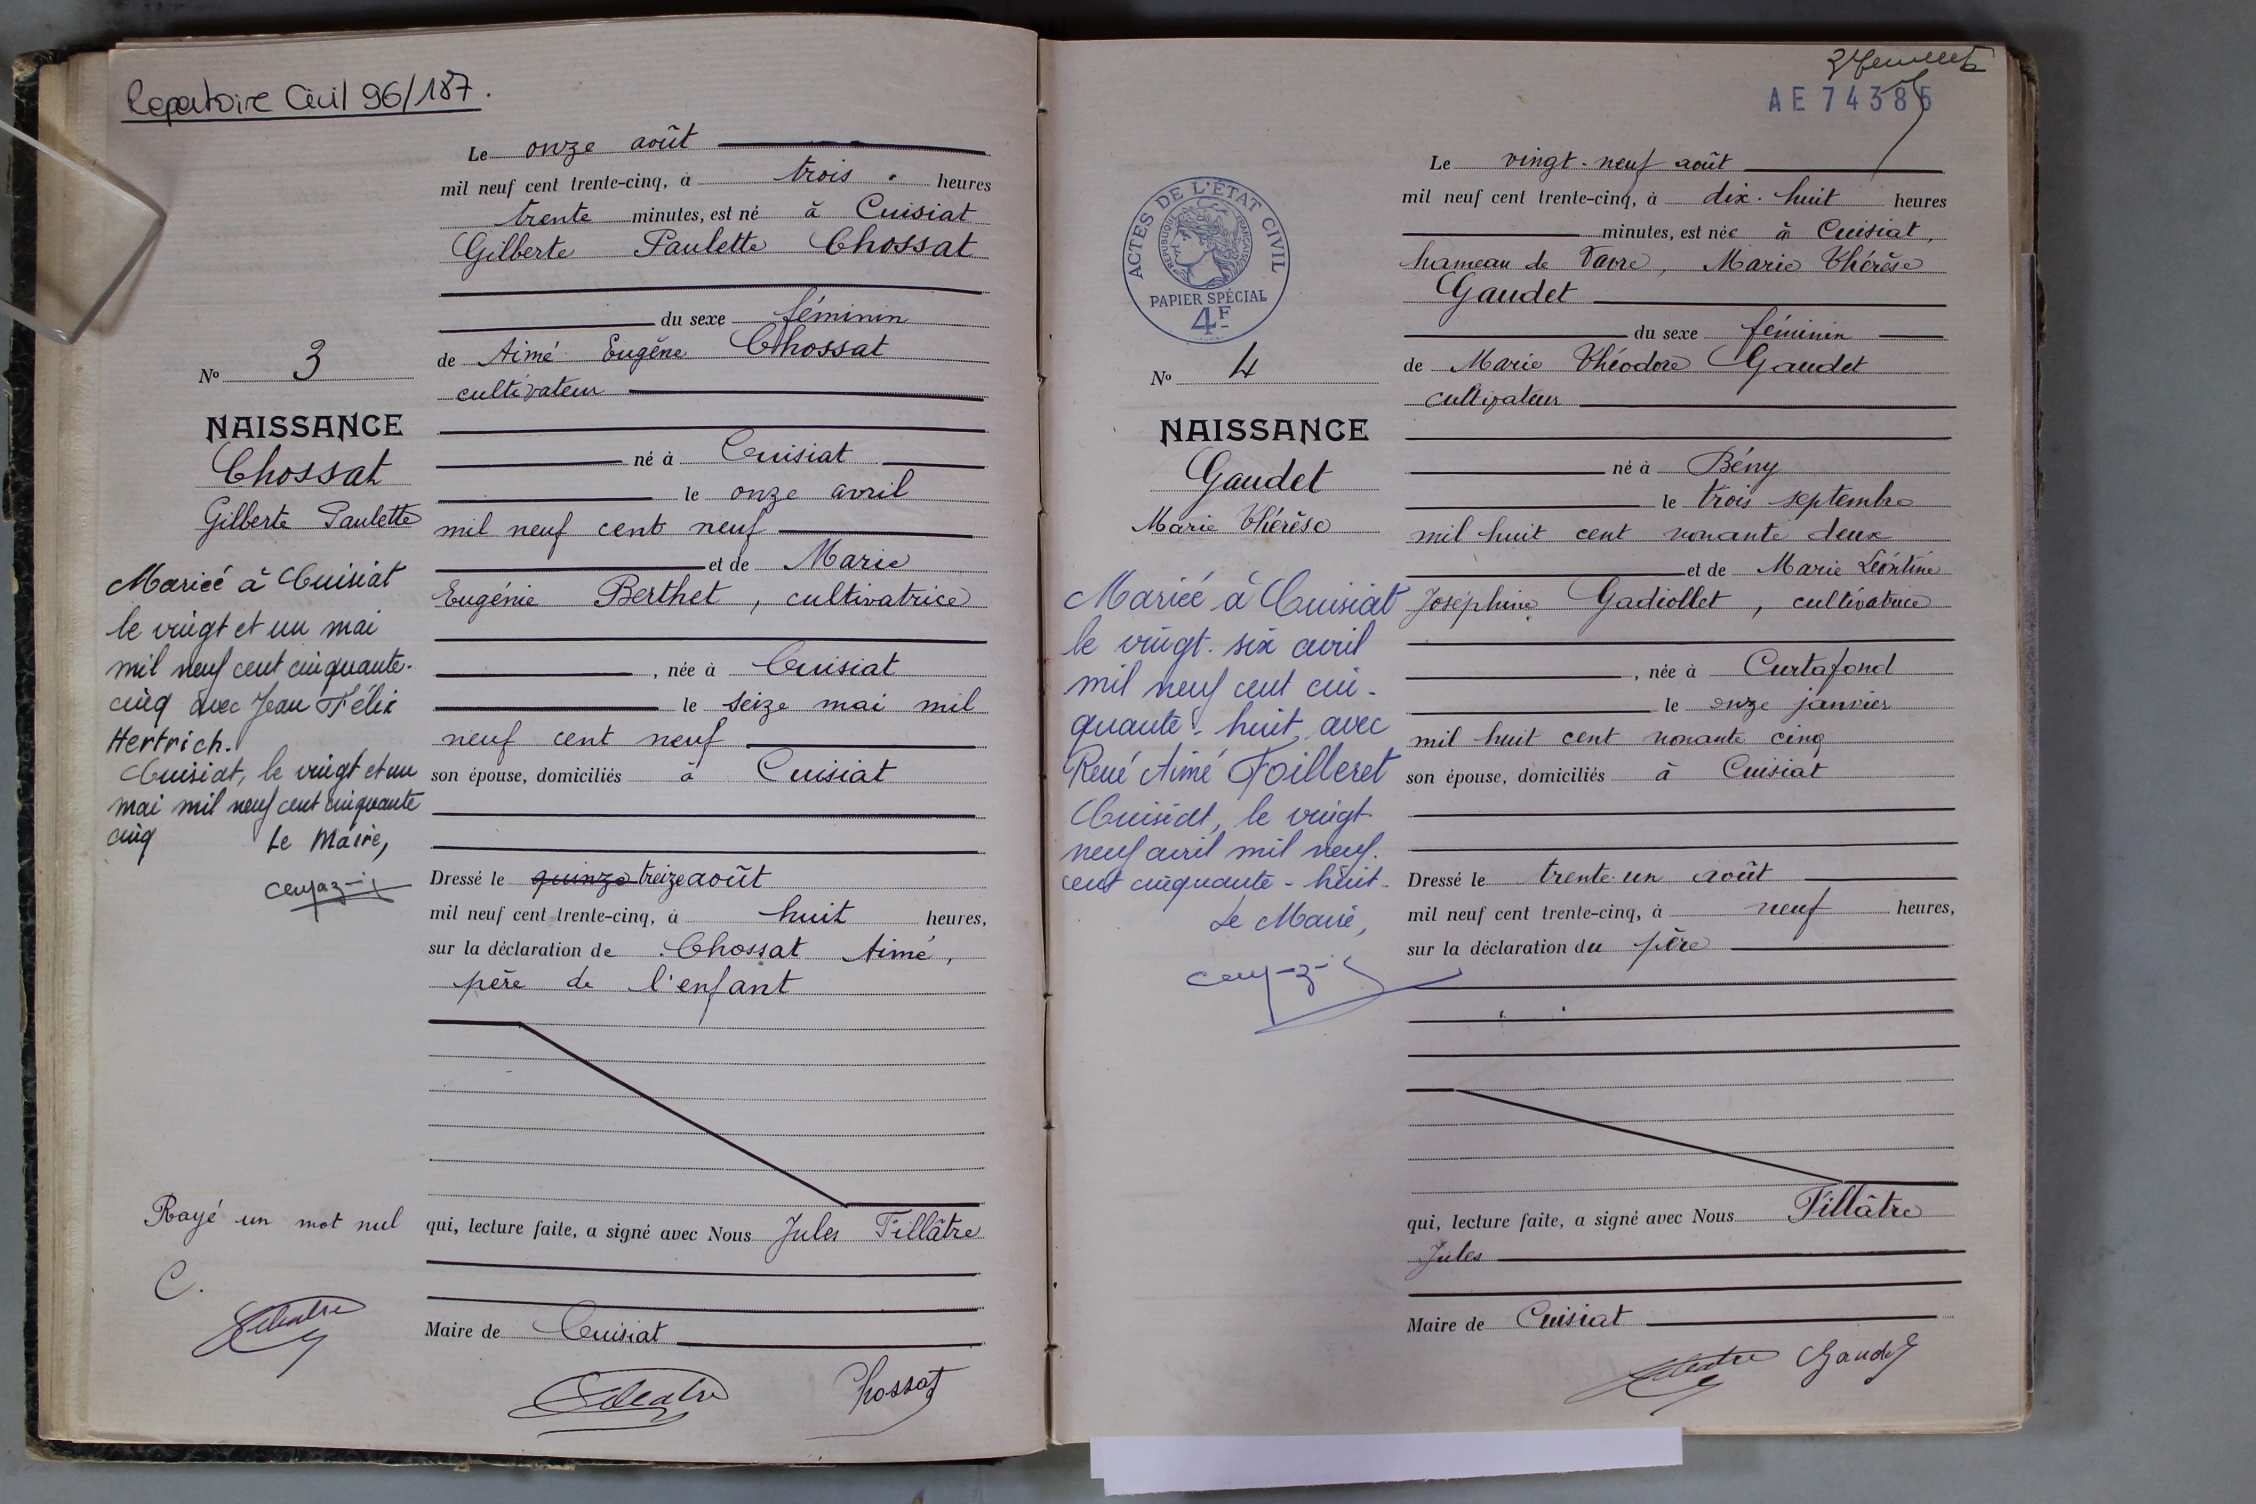 Repertoire Civil 96/187.
Le onze août
mil neuf cent trente-cinq, à trois heures
trente minutes, est né à Cuisiat
Gilberte Paulette Chossat
du sexe féminin
de Aimé Eugène Chossat
cultivateur
né à Cuisiat
le onze avril
mil neuf cent neuf
et de Marie
Eugénie Berthet, cultivatrice
, née à Cuisiat
le seize mai mil
neuf cent neuf
son épouse, domiciliés à Cuisiat
Dressé le quinze treize août
mil neuf cent trente-cinq, à huit heures,
sur la déclaration de Chossat Aimé,
père de l'enfant
qui, lecture faite, a signé avec Nous Jules Fillâtre
Maire de Cuisiat
Chossat
No 3
NAISSANCE
Chossat
Gilberte Paulette
Mariée à Cuisiat
le vingt et un mai
mil neuf cent cinquante-
cinq avec Jean Félix
Hertrich.
Cuisiat, le vingt et un
mai mil neuf cent cinquante
cinq
Le Maire,
Rayé un mot nul
C.
AE 74385
ACTES DE L'ÉTAT CIVIL
RÉPUBLIQUE FRANÇAISE
PAPIER SPÉCIAL
4F
No 4
NAISSANCE
Gaudet
Marie Thérèse
Mariée à Cuisiat
le vingt-six avril
mil neuf cent cin-
quante-huit avec
René Aimé Foilleret
Cuisiat, le vingt-
neuf avril mil neuf-
cent cinquante-huit-
Le Maire,
Le vingt-neuf août
mil neuf cent trente-cinq, à dix-huit heures
minutes, est née à Cuisiat,
hameau de , Marie Thérèse
Gaudet
du sexe féminin
de Marie Théodore Gaudet
cultivateur
né à Bény
le trois septembre
mil huit cent nonante deux
et de Marie Léontine
Joséphine Gadiollet, cultivatrice
, née à Curtafond
le onze janvier
mil huit cent nonante cinq
son épouse, domiciliés à Cuisiat
Dressé le trente-un août
mil neuf cent trente-cinq, à neuf heures,
sur la déclaration du père
qui, lecture faite, a signé avec Nous Fillâtre
Jules
Maire de Cuisiat
Gaudet